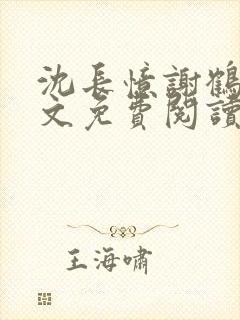 沈長憶謝鶴
文免費閱讀
王海嘯